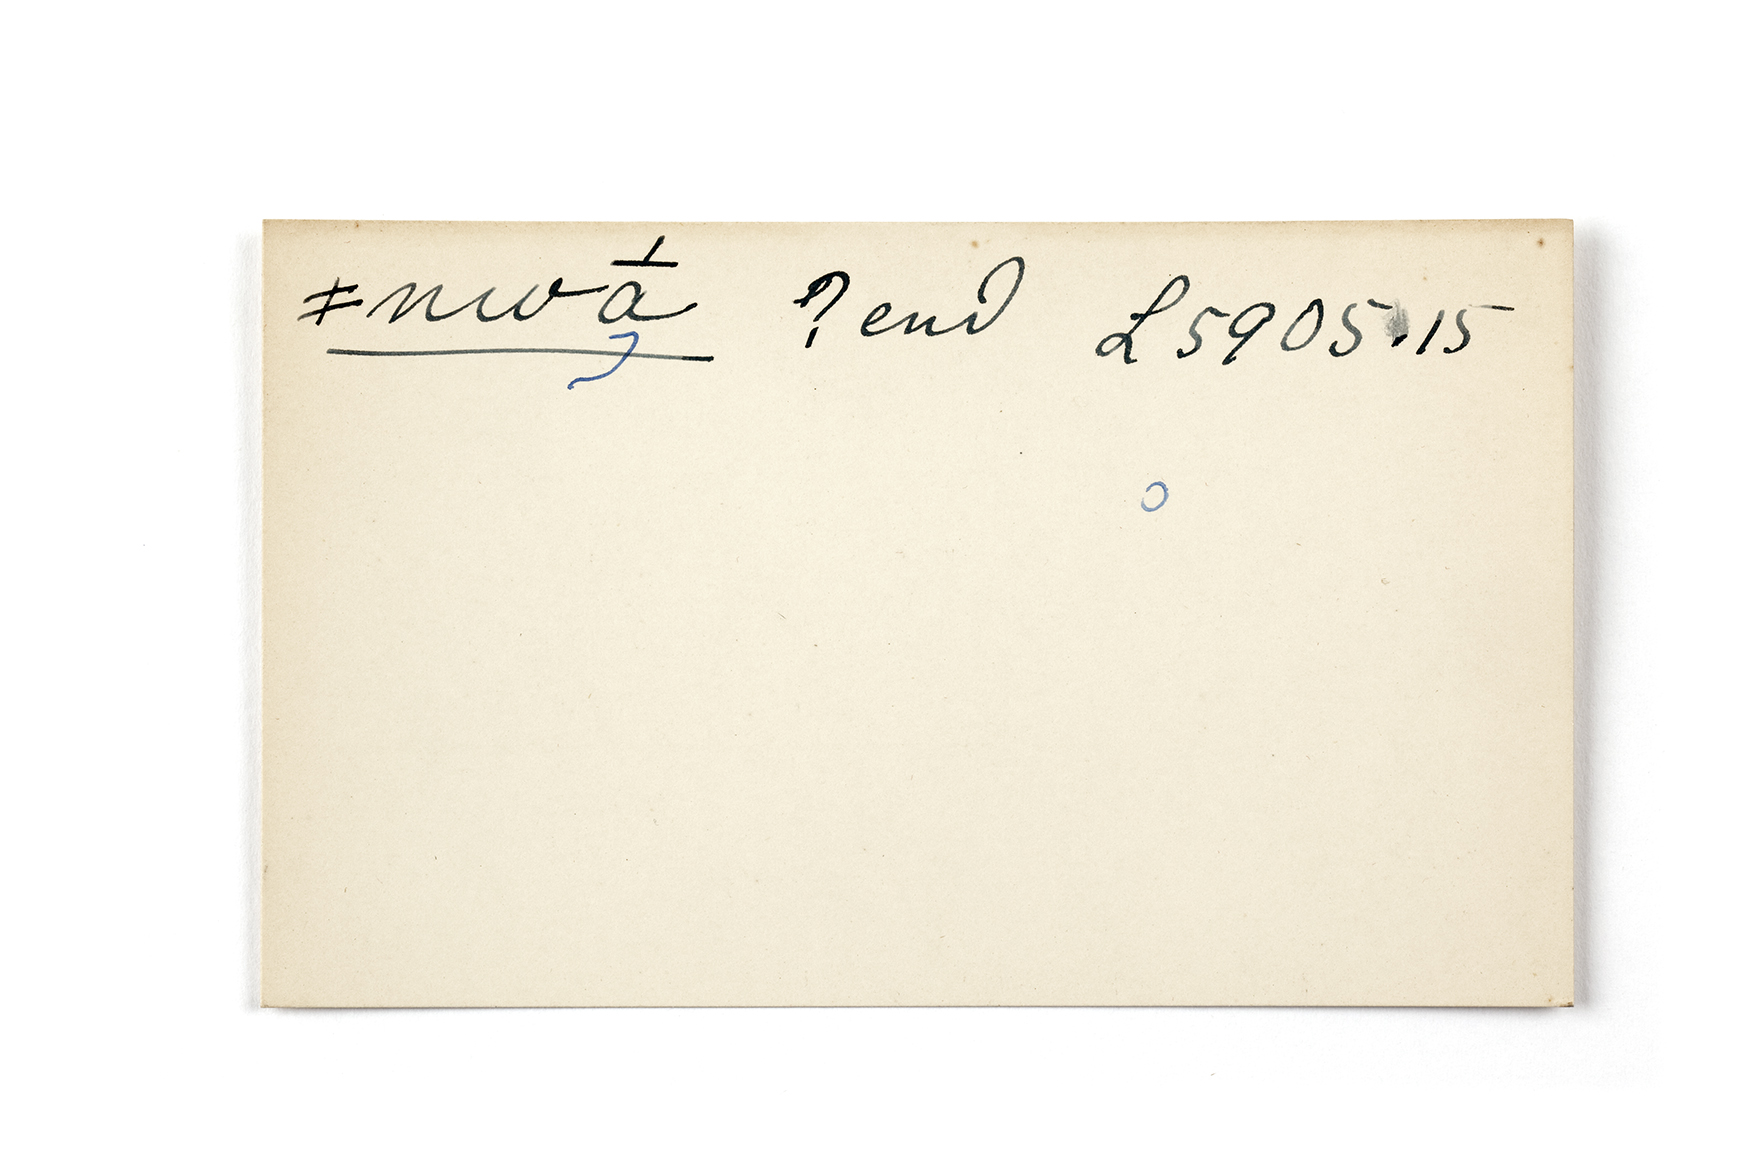 ≠nwā́ ? end L5905.15
o